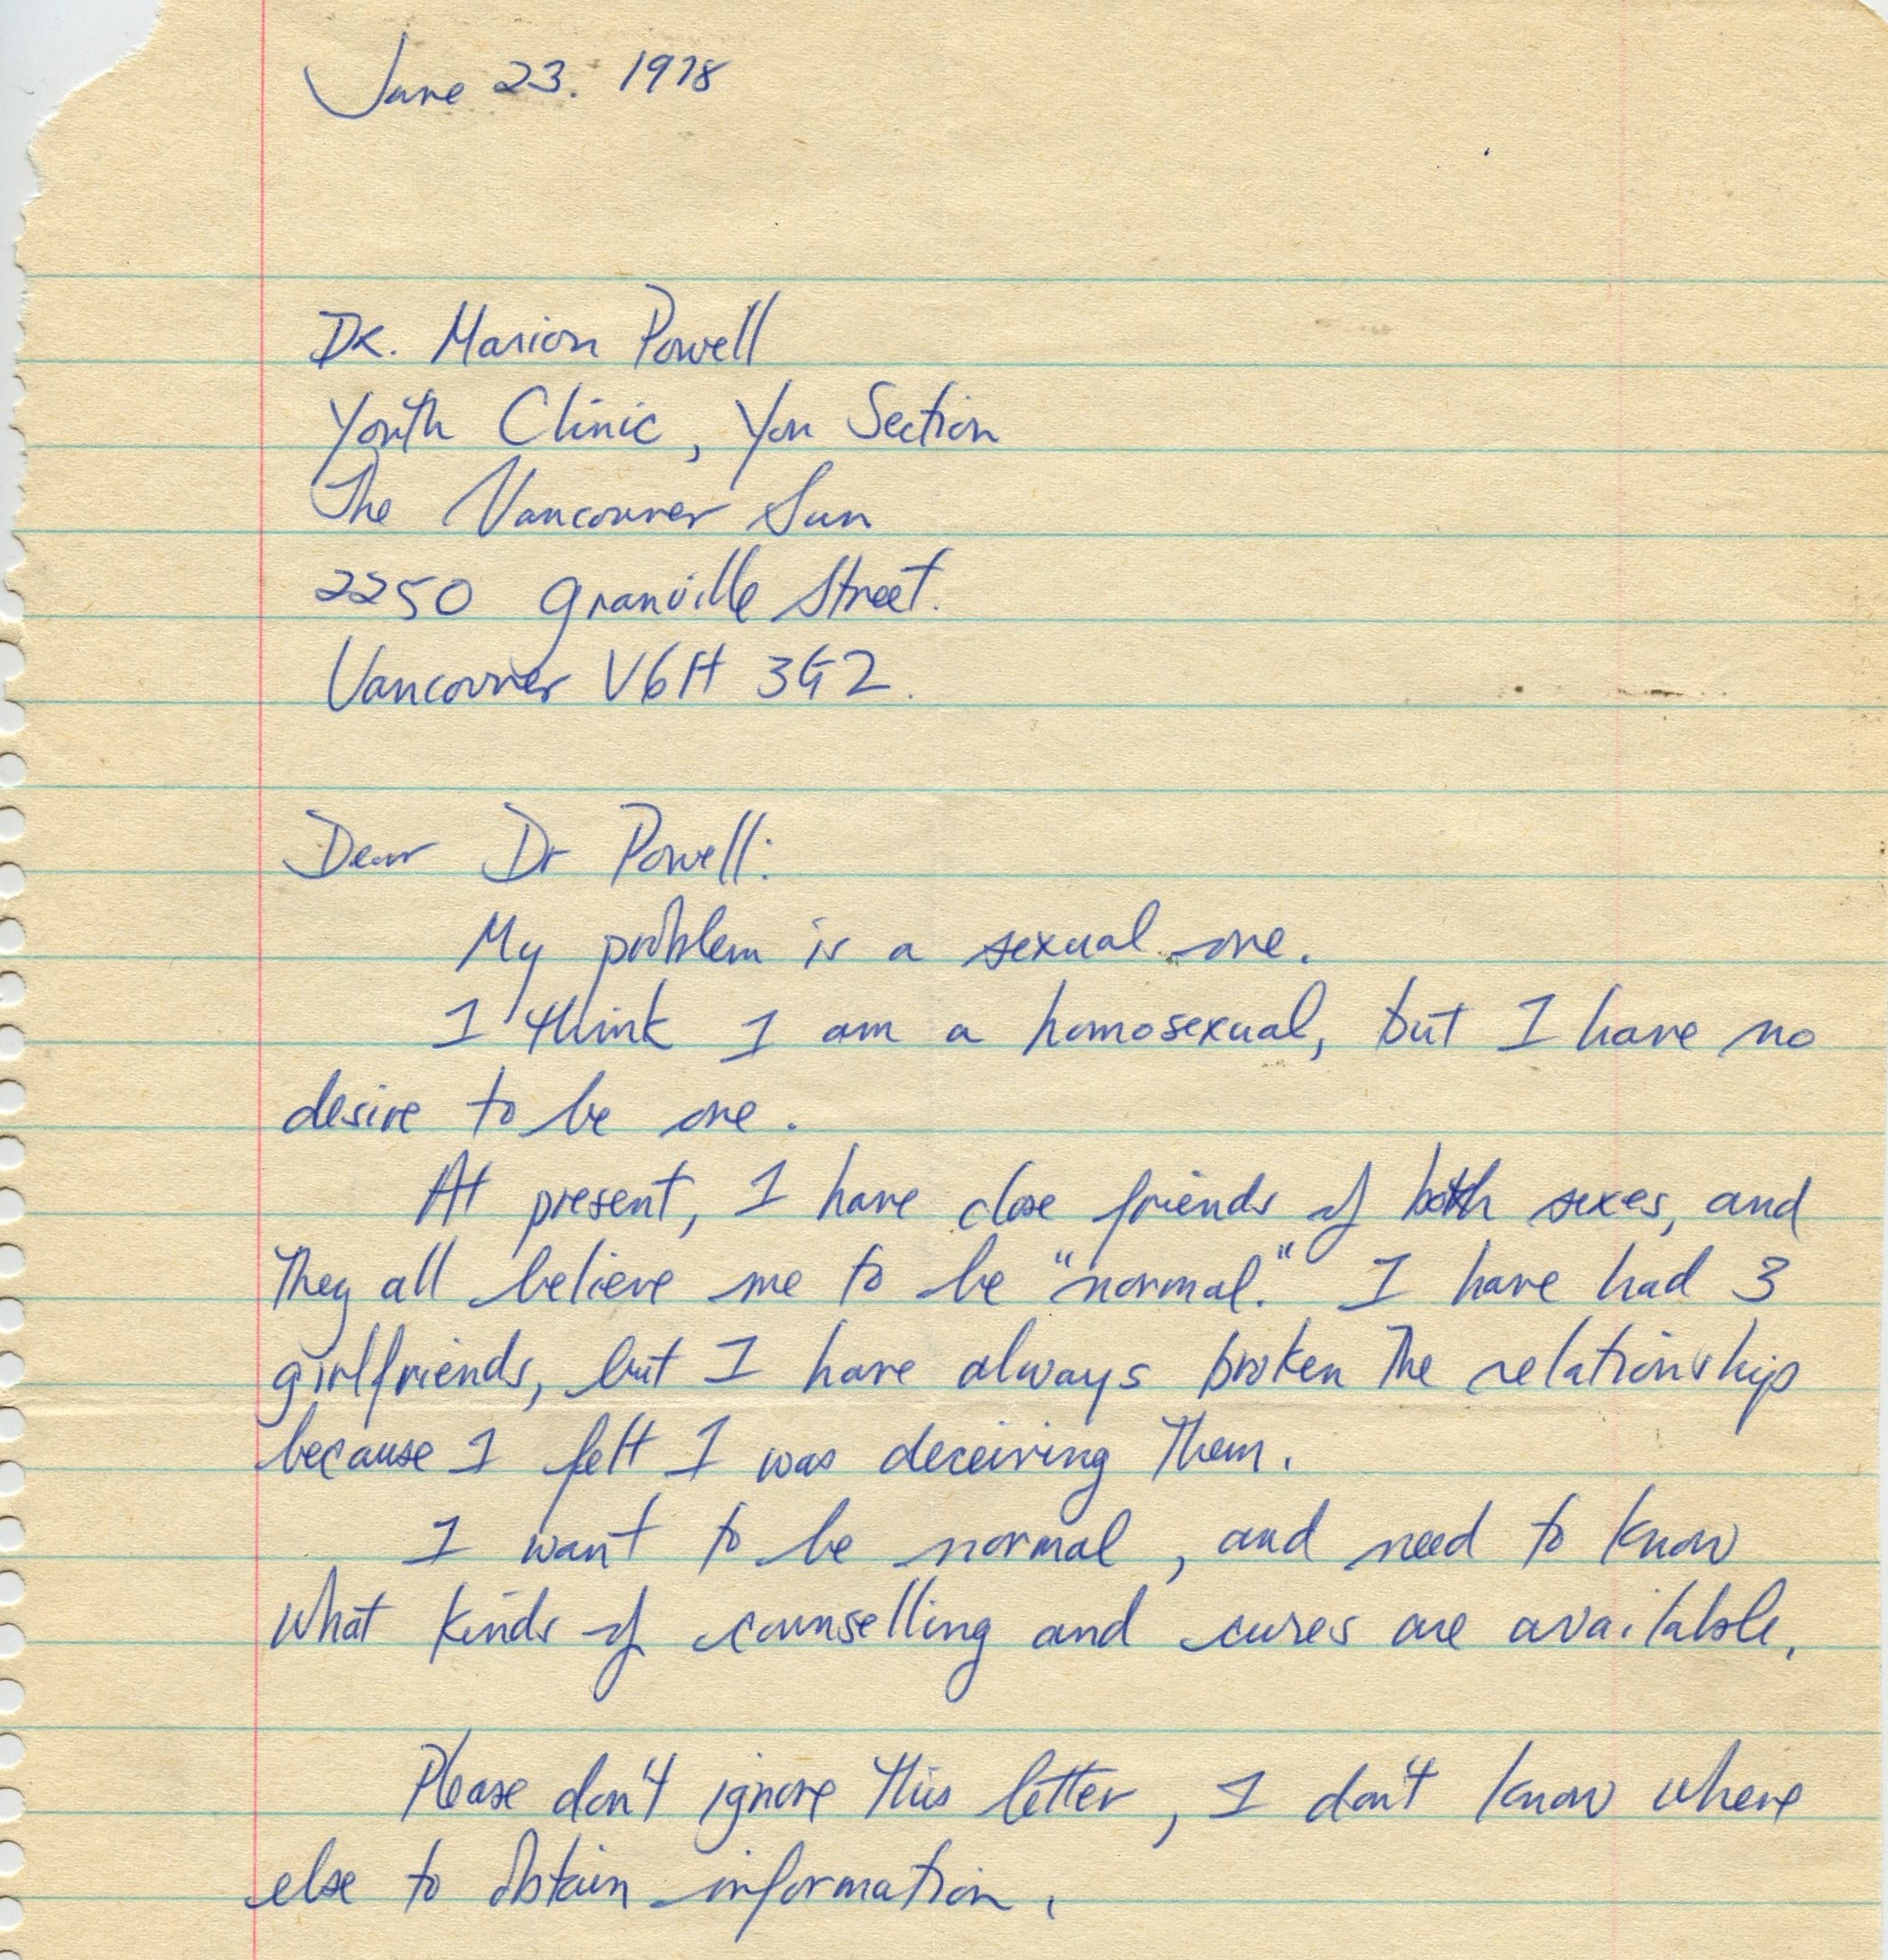 June 23. 1978
Dr. Marion Powell
Youth Clinic, You Section
The Vancouver Sun
2250 Granville Street.
Vancouver V6H 3G2.
Dear Dr Powell:
My problem is a sexual one.
I think I am a homosexual, but I have no
desire to be one.
At present, I have close friends of both sexes, and
they all believe me to be "normal." I have had 3
girlfriends, but I have always broken the relationship
because I felt I was deceiving them.
I want to be normal, and need to know
what kinds of counselling and cures are available.
Please don't ignore this letter, I don't know where
else to obtain information.